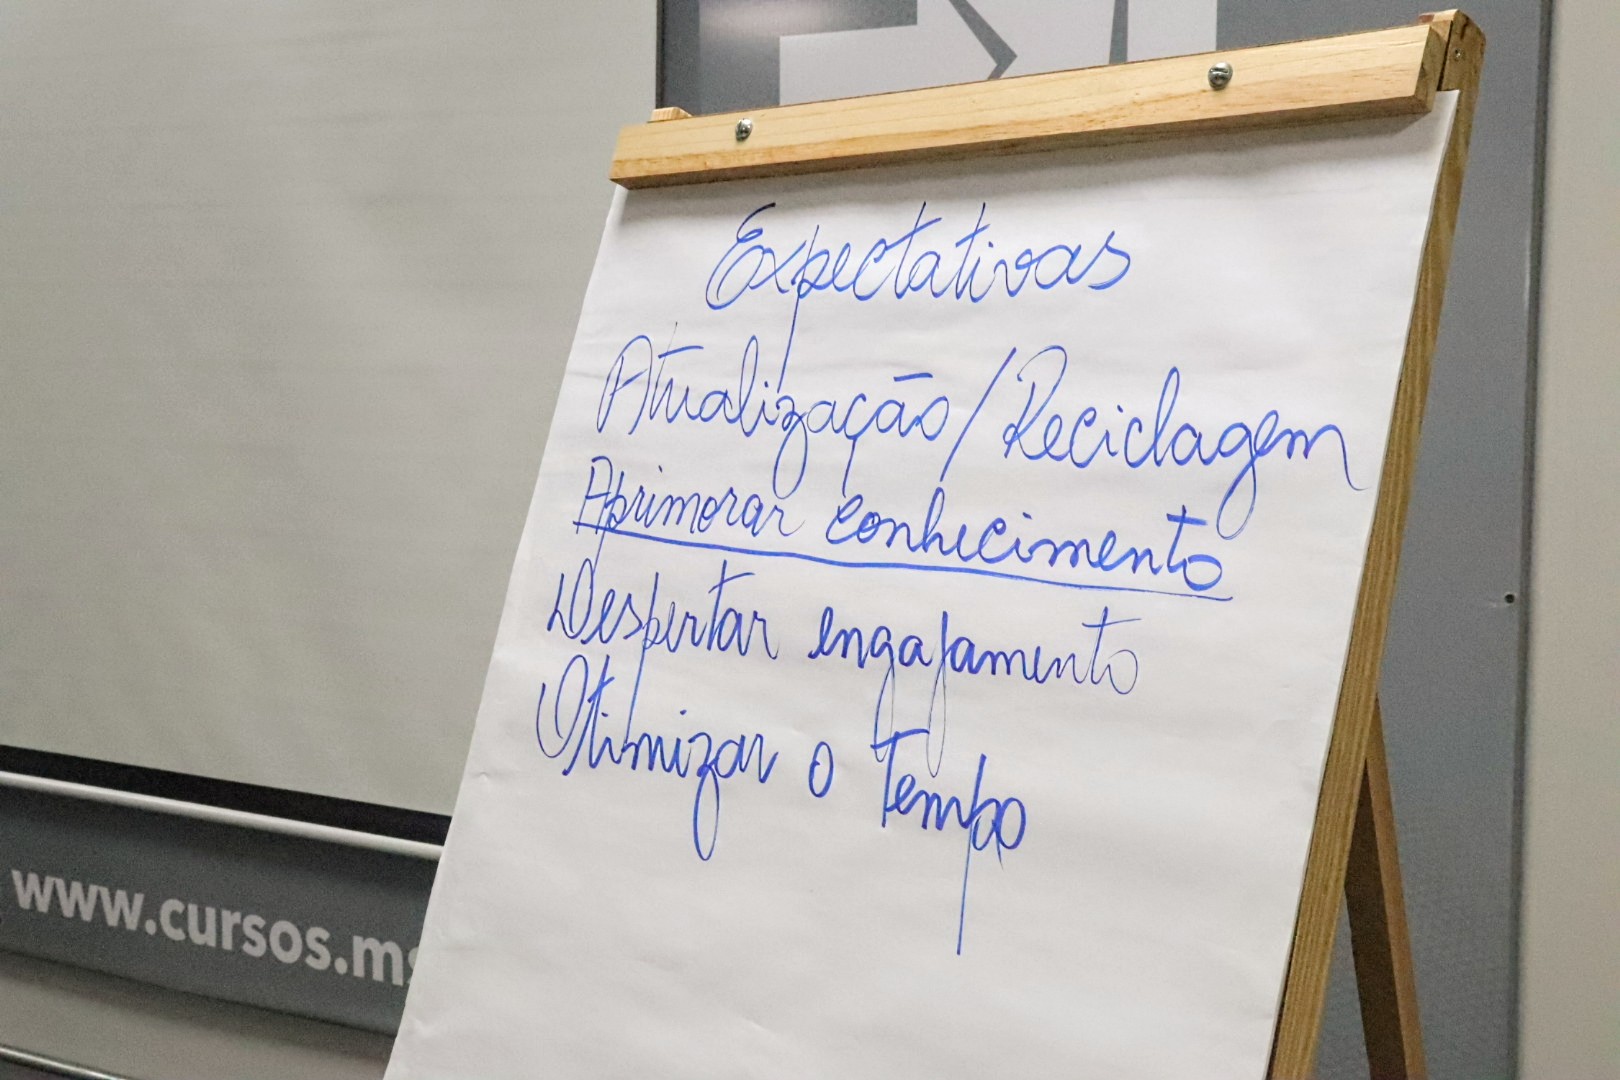 Expectativas
Atualização/Reciclagem
Aprimorar conhecimento
Despertar engajamento
Otimizar o tempo
www.cursos.ms